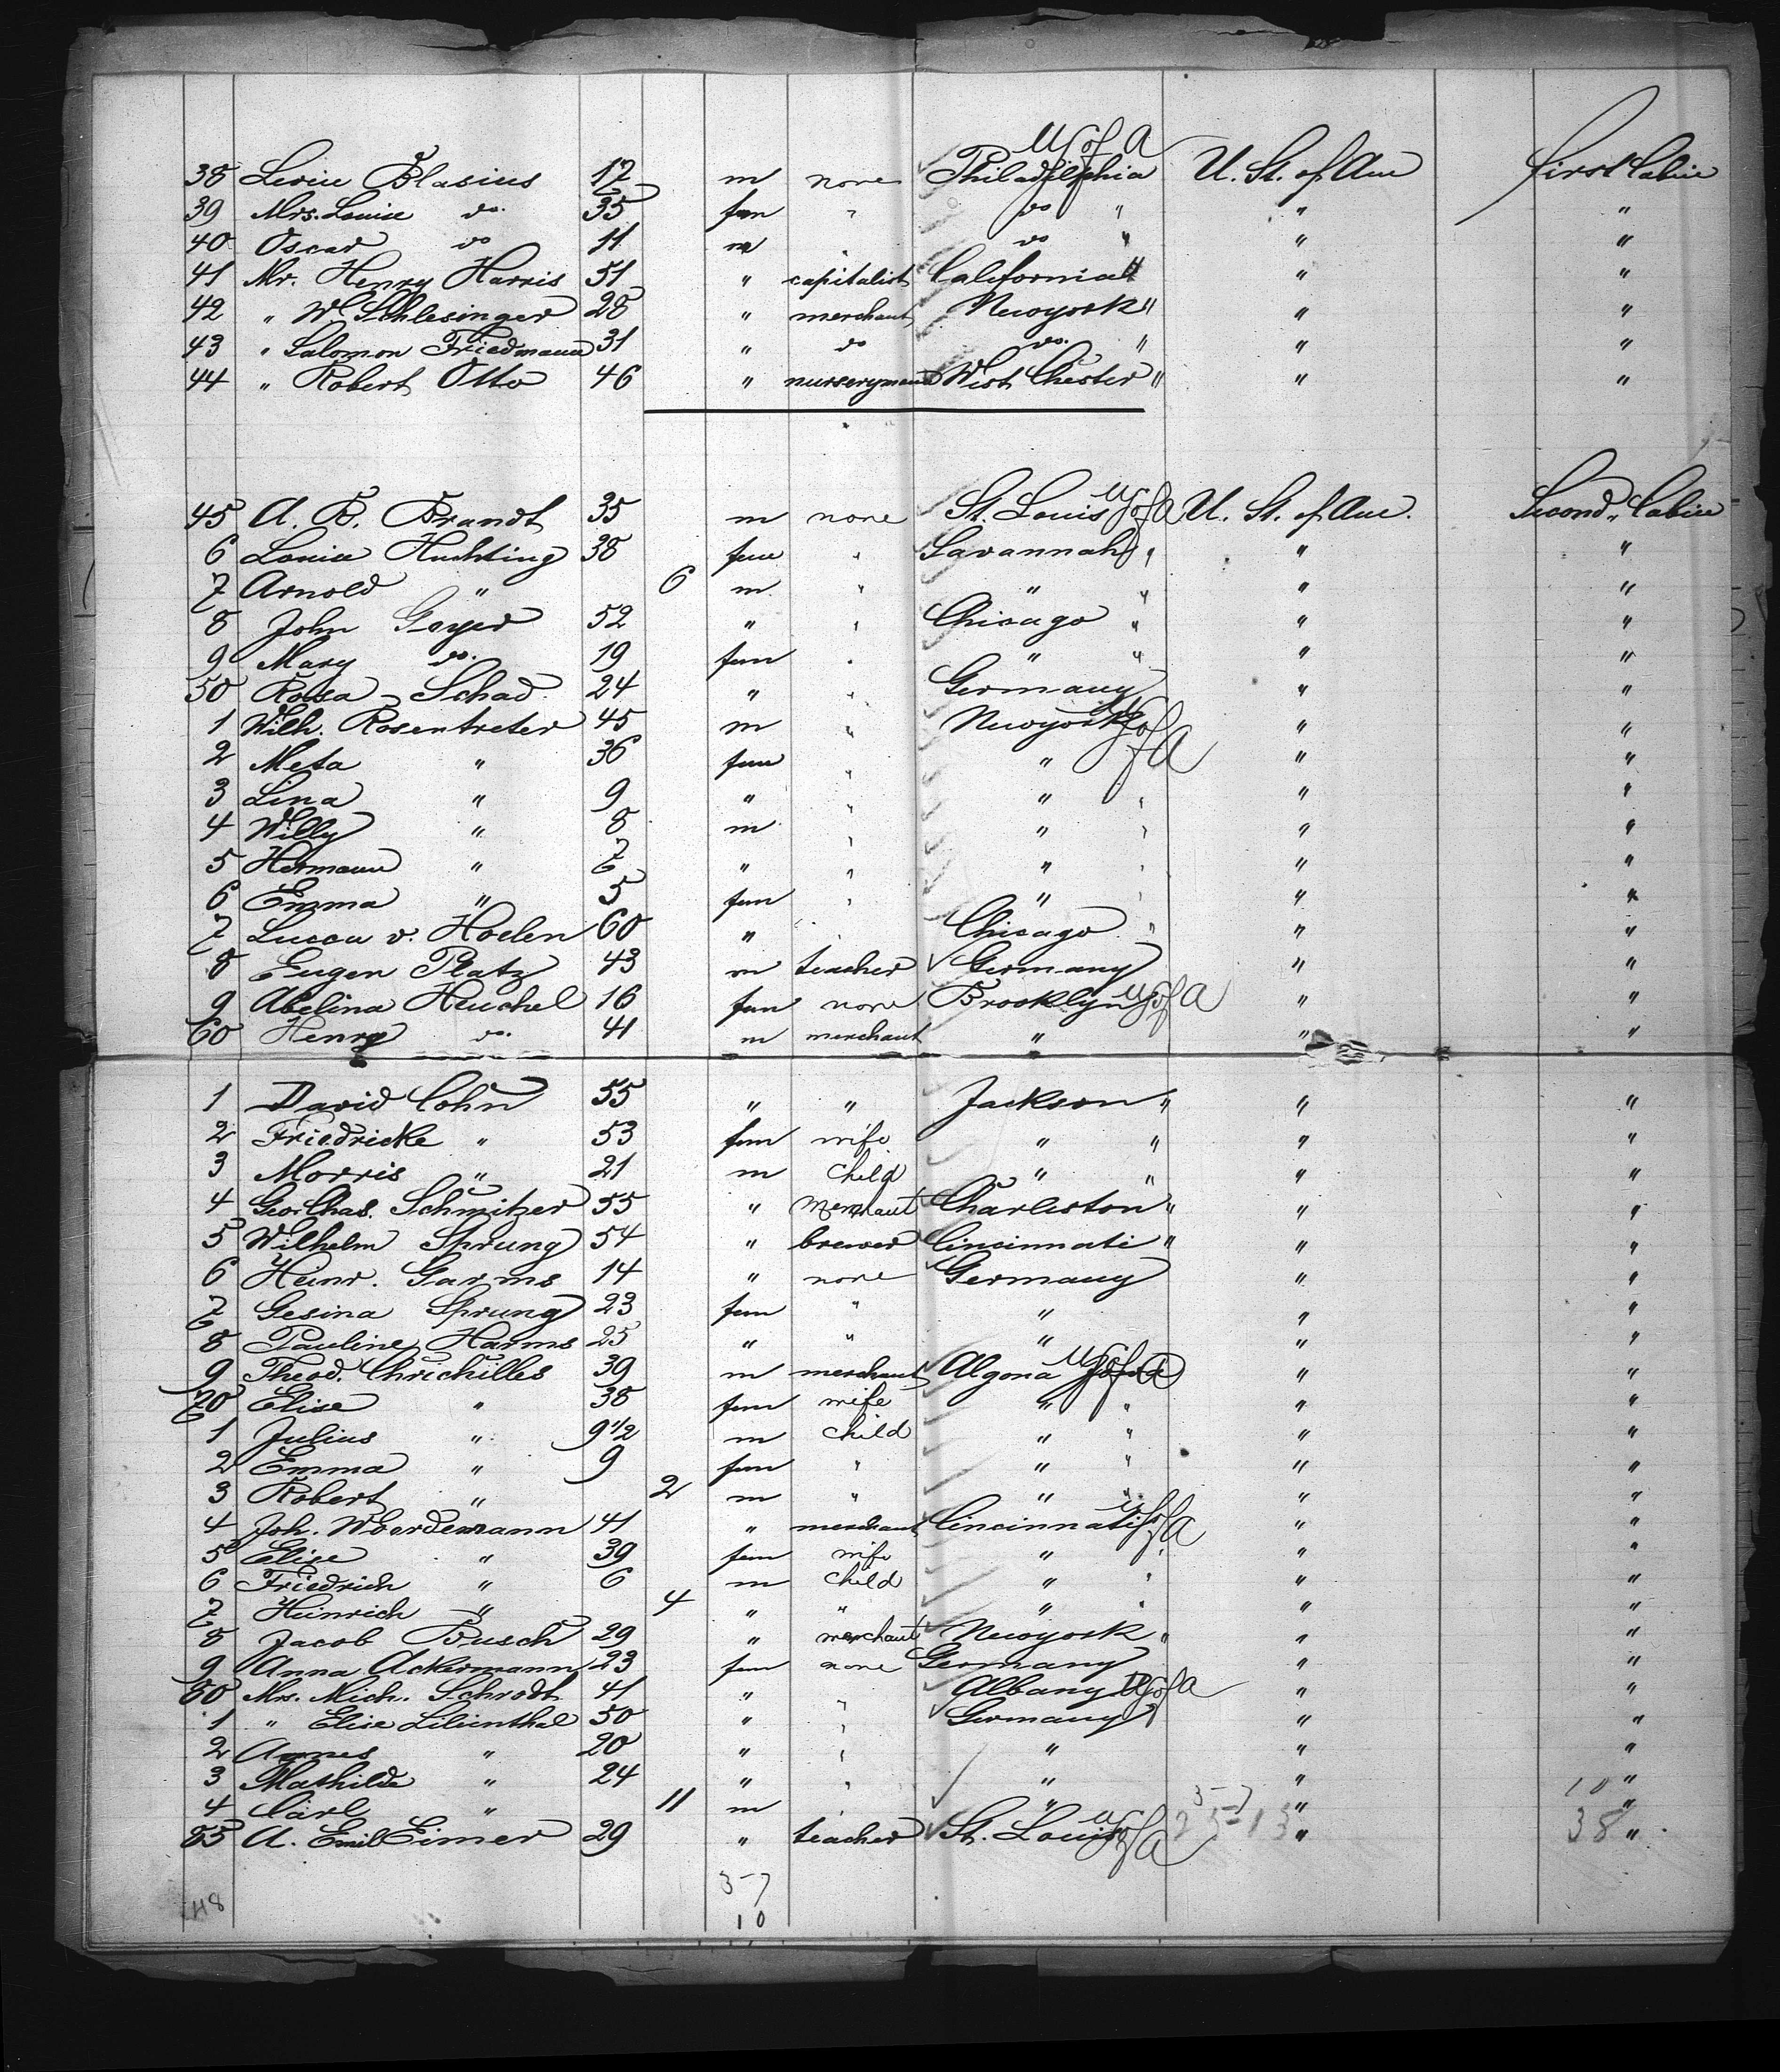 U S of A
38 Levin Blasius 17 m none Philadelphia U. St. of Am First Cabin
39 Mrs. Louise do. 35 fem " do " " "
40 Oscar do 11 m " do " " "
41 Mr. Henry Harris 51 " capitalist California " " "
42 " W. Schlesinger 28 " merchant Newyork " " "
43 " Salomon Friedmann 31 " do do. " " "
44 " Robert Otto 46 " nurseryman West Chester " " "
45 A. B. Brandt 35 m none St. Louis U S of A U. St. of Am. Second Cabin
6 Louise Huchting 38 fem " Savannah " " "
7 Arnold " 6 m " " " " "
8 John Geyer 52 " " Chicago " " "
9 Mary do. 19 fem " " " " "
50 Rosa Schad 24 " " Germany " "
1 Wilh. Rosentreter 45 m " Newyork U S of A " "
2 Meta " 36 fem " " " "
3 Lina " 9 " " " " " "
4 Willy " 8 m " " " " "
5 Hermann " 7 " " " " " "
6 Emma " 5 fem " " " " "
7 Lucca v. Hoelen 60 " " Chicago " " "
8 Eugen Platz 43 m teacher Germany " "
9 Abelina Heuchel 16 fem none Brooklyn U S of A " "
60 Henry do. 41 m merchant " " "
1 David Cohn 55 " " Jackson " " "
2 Friedricke " 53 fem wife " " " "
3 Morris " 21 m child " " " "
4 Geo. Chas. Schmitzer 55 " merchant Charleston " " "
5 Wilhelm Sprung 54 " brewer Cincinnati " " "
6 Heinr. Garms 14 " none Germany " "
7 Gesina Sprung 23 fem " " " "
8 Pauline Harms 25 " " " " "
9 Theod. Chrichilles 39 m merchant Algona U S of A " "
70 Elise " 38 fem wife " " " "
1 Julius " 9 1/2 m child " " " "
2 Emma " 9 fem " " " " "
3 Robert " 2 m " " " " "
4 Joh. Woerdemann 41 " merchant Cincinnati U S of A " "
5 Elise " 39 fem wife " " " "
6 Friedrich " 6 m child " " " "
7 Heinrich " 4 " " " " " "
8 Jacob Busch 29 " merchant Newyork " " "
9 Anna Ackermann 23 fem none Germany " "
80 Mrs. Mich. Schrodt 41 " " Albany U S of A " "
1 " Elise Lilienthal 50 " " Germany " "
2 Agnes " 20 " " " " "
3 Mathilde " 24 " " " " "
4 Carl " 11 m " " " "
85 A. Emil Eimer 29 " teacher St. Louis U S of A " 38 "
37
10
48